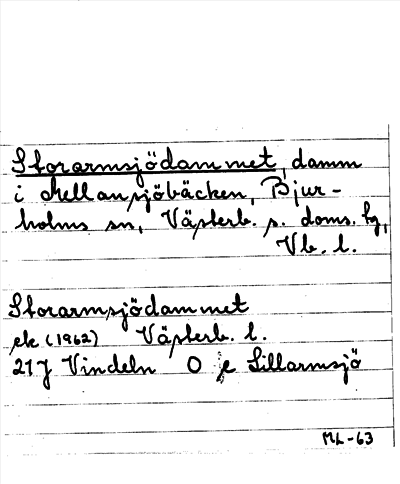 Storarmsjödammet, damm
i Mellansjöbäcken, Bjur-
holms sn, Västerb. s. doms. hg,
Vb. l.
Storarmsjödammet
ek (1962) Västerb. l.
21J Vindeln O e Lillarmsjö
ML-63